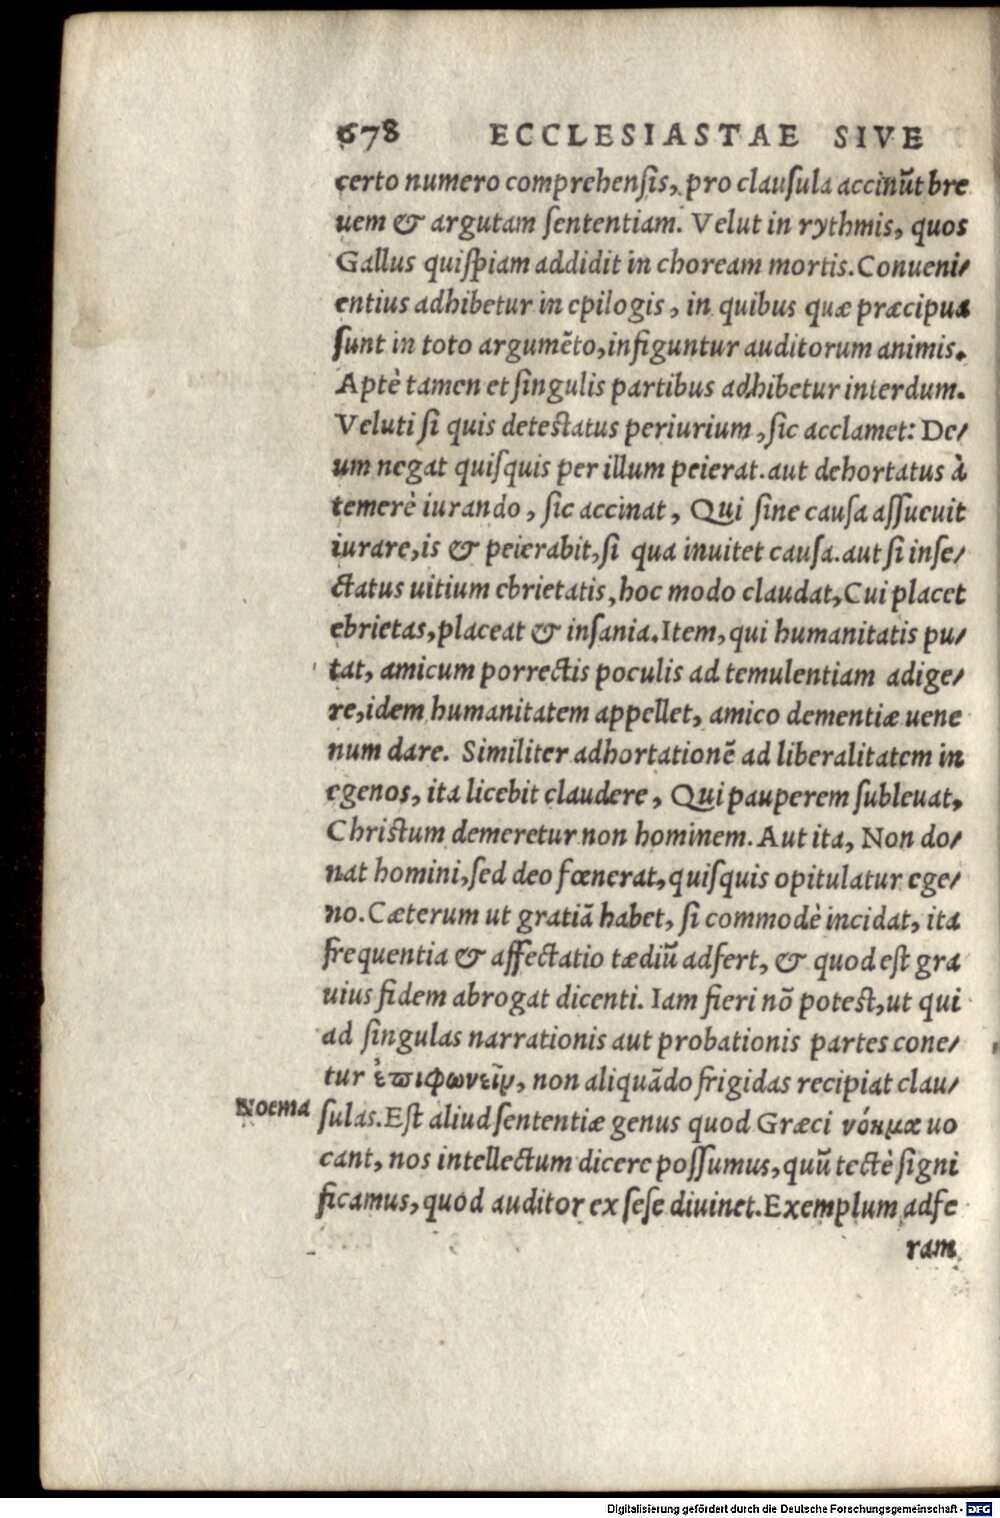 678 ECCLESIASTAE SIVE
certo numero comprehenſis, pro clauſula accinũt bre
uem & argutam ſententiam. Velut in rythmis, quos
Gallus quiſpiam addidit in choream mortis. Conueni/
entius adhibetur in epilogis, in quibus quæ præcipua
ſunt in toto argumẽto, infiguntur auditorum animis.
Aptè tamen et ſingulis partibus adhibetur interdum.
Veluti ſi quis deteſtatus periurium, ſic acclamet: De/
um negat quiſquis per illum peierat. aut dehortatus à
temerè iurando, ſic accinat, Qui ſine cauſa aſſueuit
iurare, is & peierabit, ſi qua inuitet cauſa. aut ſi inſe/
ctatus uitium ebrietatis, hoc modo claudat, Cui placet
ebrietas, placeat & inſania. Item, qui humanitatis pu/
tat, amicum porrectis poculis ad temulentiam adige/
re, idem humanitatem appellet, amico dementiæ uene
num dare. Similiter adhortationẽ ad liberalitatem in
egenos, ita licebit claudere, Qui pauperem ſubleuat,
Chriſtum demeretur non hominem. Aut ita, Non do/
nat homini, ſed deo fœnerat, quiſquis opitulatur ege/
no. Cæterum ut gratiã habet, ſi commodè incidat, ita
frequentia & affectatio tædiũ adfert, & quod eſt gra
uius fidem abrogat dicenti. Iam fieri nõ poteſt, ut qui
ad ſingulas narrationis aut probationis partes cone/
tur ἐπιφωνεῖν, non aliquãdo frigidas recipiat clau/
Noema
ſulas. Eſt aliud ſententiæ genus quod Græci νόημα uo
cant, nos intellectum dicere poſſumus, quũ tectè ſigni
ficamus, quod auditor ex ſeſe diuinet. Exemplum adfe
ram
Digitalisierung gefördert durch die Deutsche Forschungsgemeinschaft - DFG